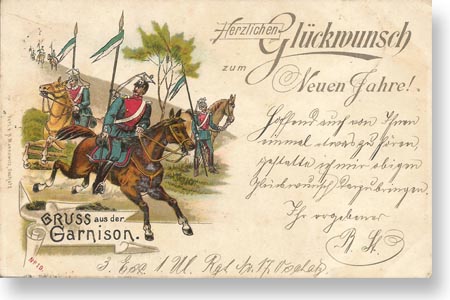 Herzlichen
Glückwunsch
zum
Neuen Jahre!
Hoffend auch von Ihnen
einmal etwas zu hören,
gestatte ich mir obigen
Glückwunsch darzubringen.
Ihr ergebener
R. H.
GRUSS aus der
Garnison.
No 10.
3. Esc. 1. Ul. Rgt Nr. 17. Oschatz